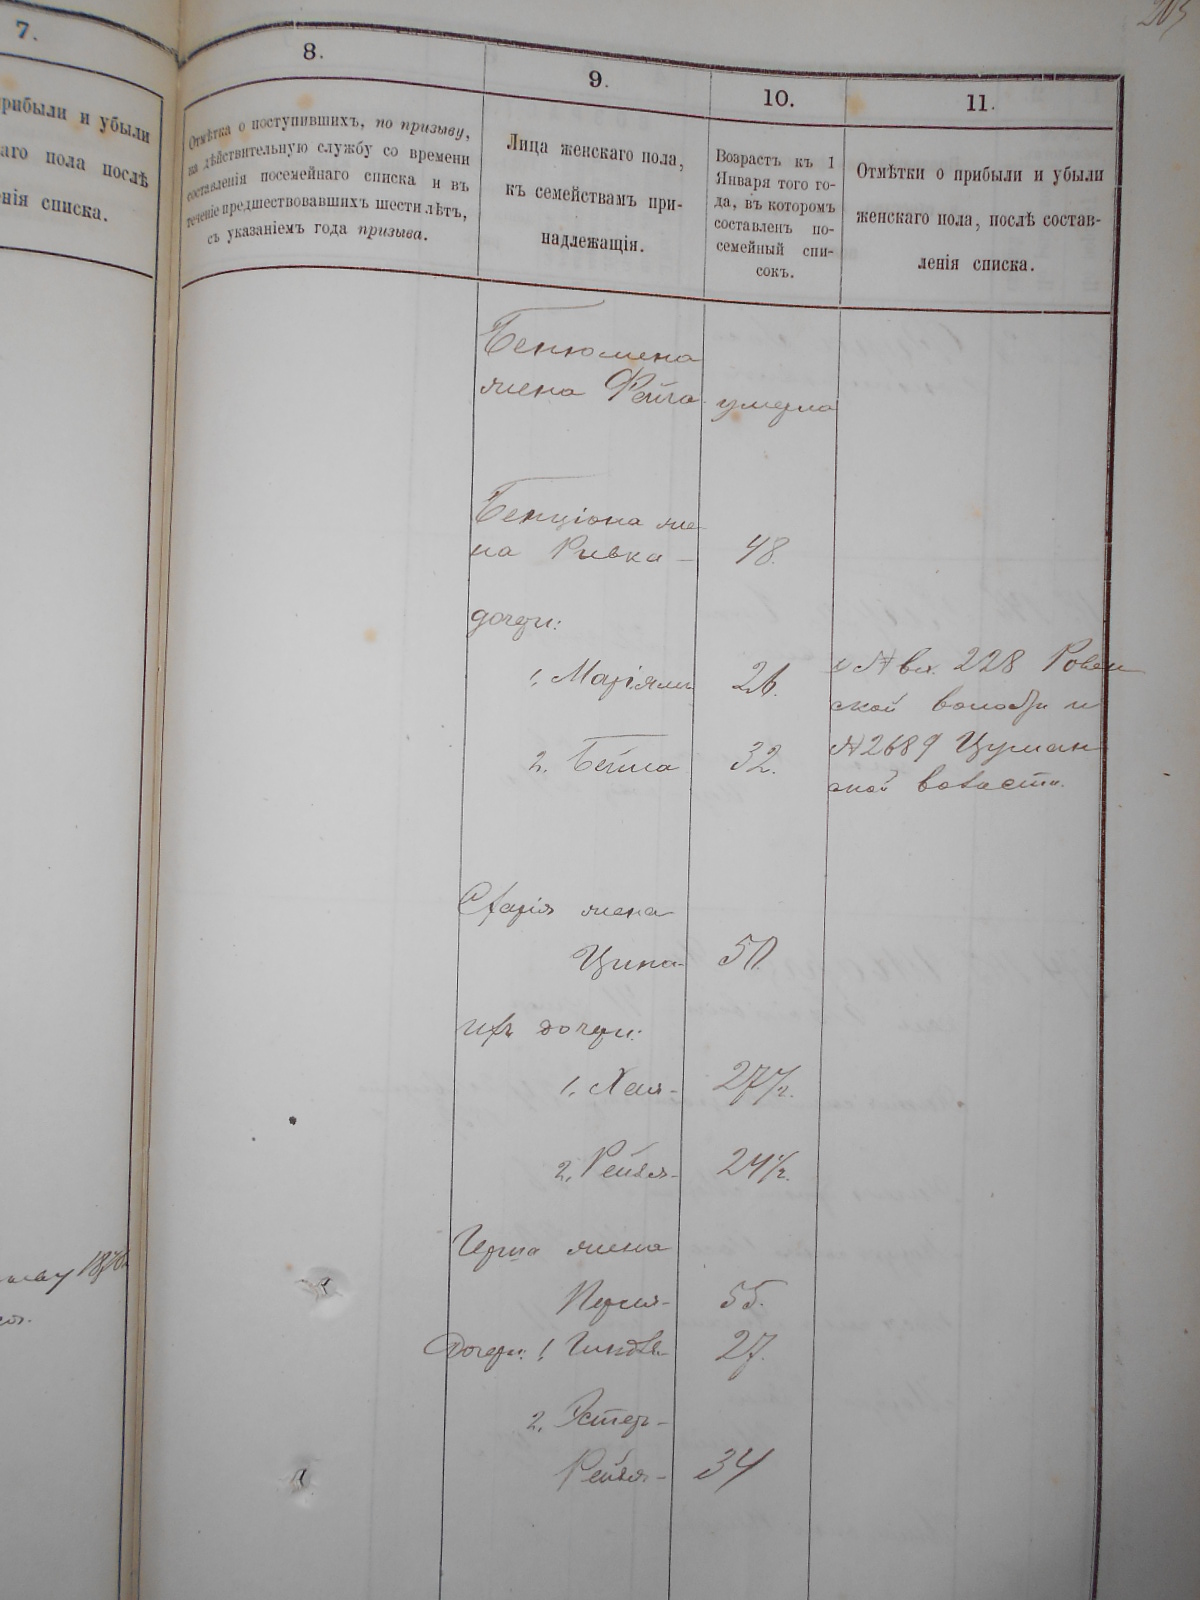 203
7.
8.
9.
10.
11.
прибыли и убыли
аго пола послѣ
енія списка.
Отмѣтка о поступившихъ, по призыву,
на дѣйствительную службу со времени
составленія посемейнаго списка и въ
теченіе предшествовавшихъ шести лѣтъ,
съ указаніемъ года призыва.
Лица женскаго пола,
къ семействамъ при-
надлежащія.
Возрастъ къ 1
Января того го-
да, въ которомъ
составленъ по-
семейный спи-
сокъ.
Отмѣтки о прибыли и убыли
женскаго пола, послѣ состав-
ленія списка.
Бенюмена
жена Фейга умерла
Бенціона же
на Ривка - 48.
дочери:
1. Маріямъ 26.
№ вл. 228 Ровен
ской волости и
2. Бейла 32.
№2689 Цуман
ской волости.
жена
Цина- 50.
ихъ дочери:
1. Хая- 27 1/2.
2. Рейзя- 24 1/2.
Герша жена
Перля- 55.
Дочери: 1. Гиндля- 27.
2. Эстеръ-
Рейзя- 34